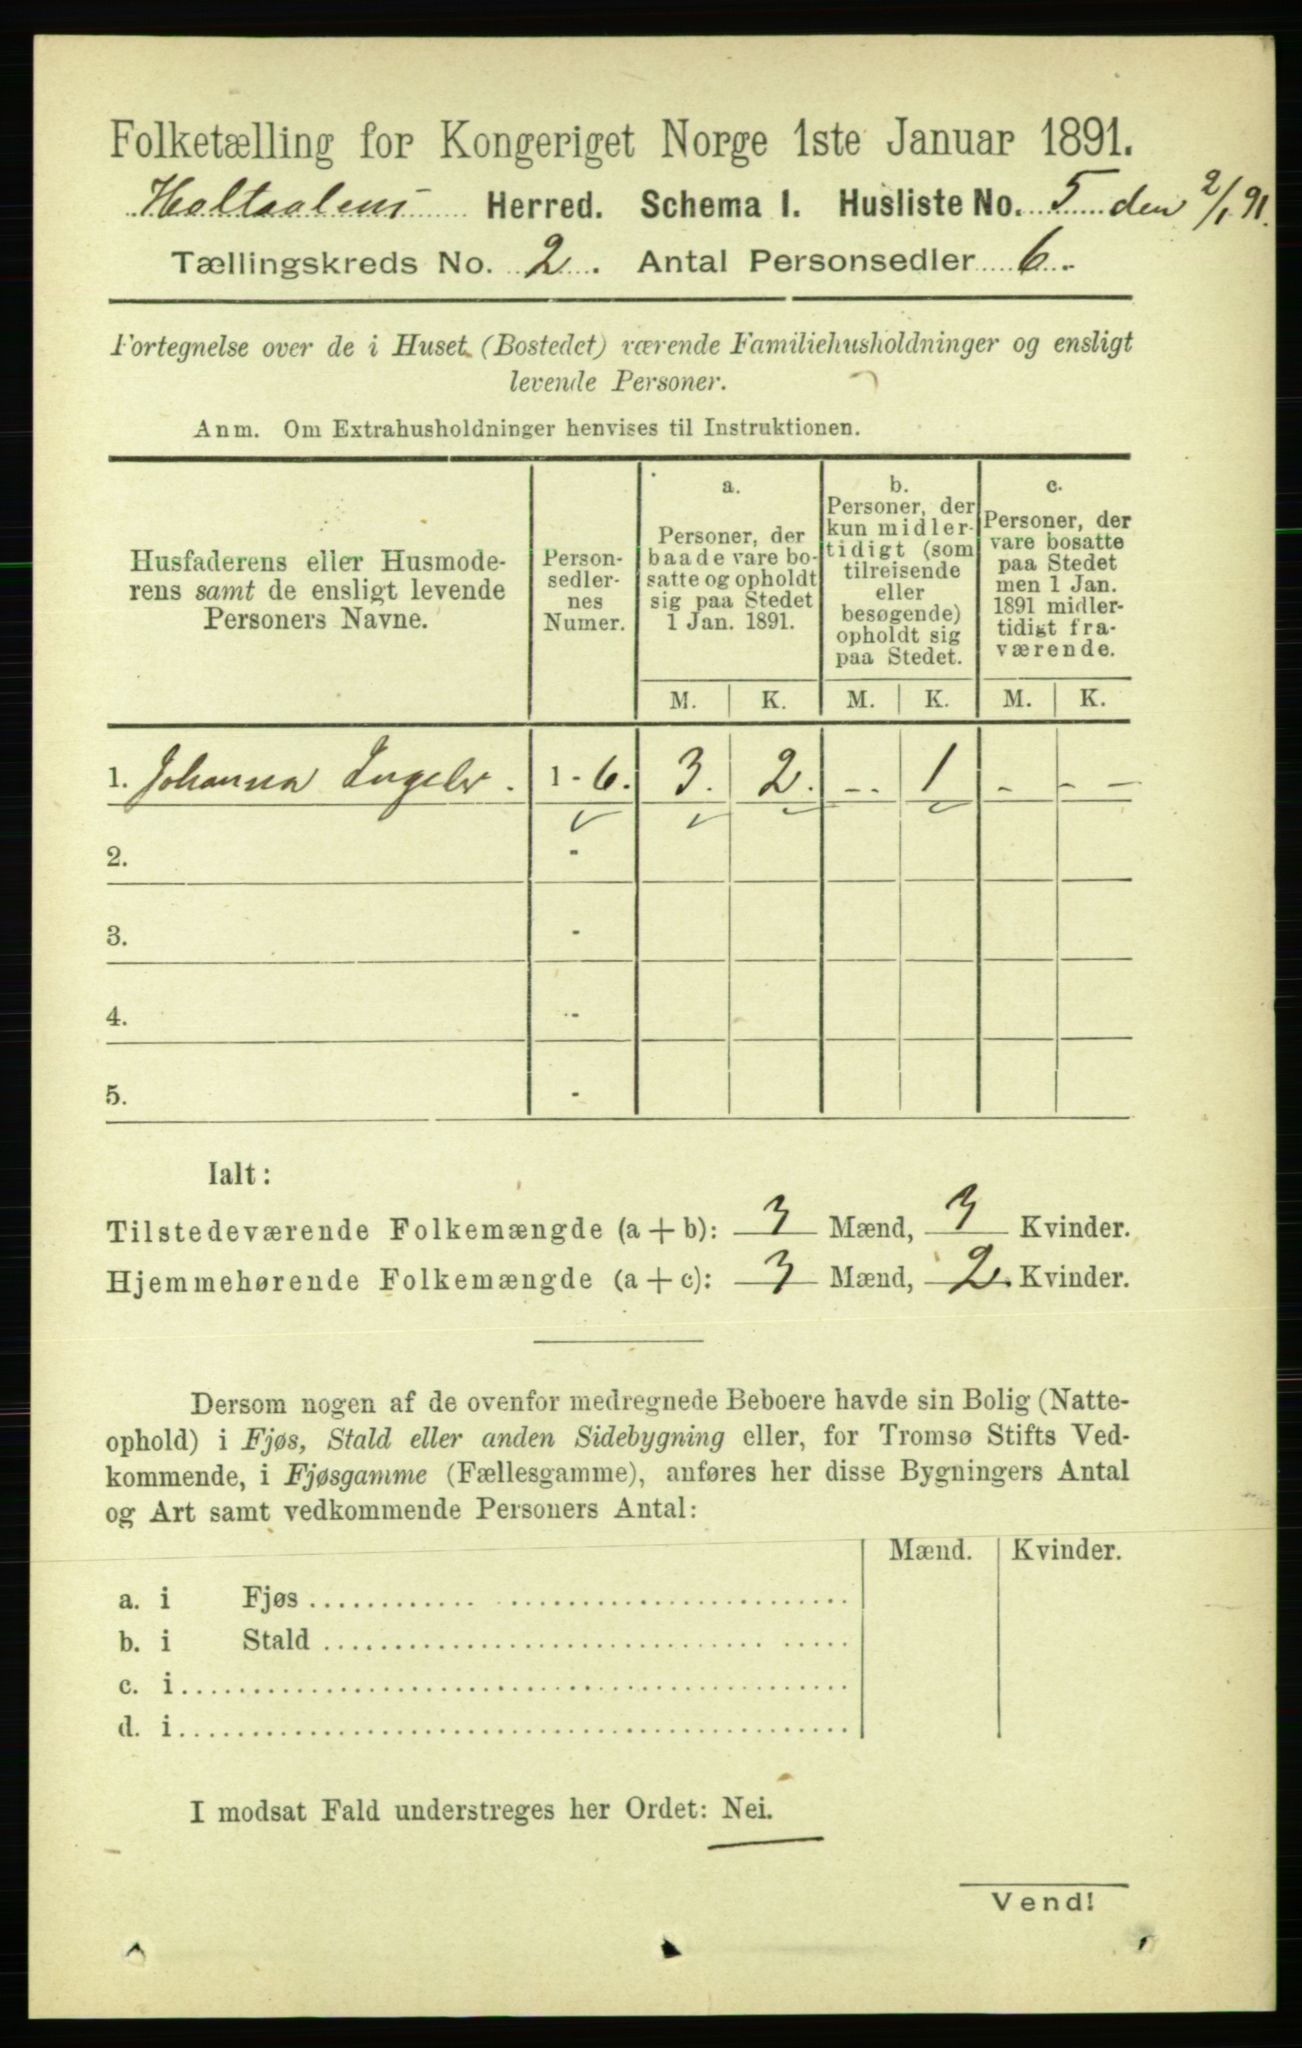 Folketælling for Kongeriget Norge 1ste Januar 1891.
Holtaalens Herred. Schema I. Husliste No. 5 den 2/1 91.
Tællingskreds No. 2. Antal Personsedler 6.
Fortegnelse over de i Huset (Bostedet) værende Familiehusholdninger og ensligt
levende Personer.
Anm. Om Extrahusholdninger henvises til Instruktionen.
Husfaderens eller Husmode-
rens samt de ensligt levende
Personers Navne.
Person-
sedler-
nes
Numer.
a.
Personer, der
baade vare bo-
satte og opholdt
sig paa Stedet
1 Jan. 1891.
b.
Personer, der
kun midler-
tidigt (som
tilreisende
eller
besøgende)
opholdt sig
paa Stedet.
c.
Personer, der
vare bosatte
paa Stedet
men 1 Jan.
1891 midler-
tidigt fra-
værende.
M. K. M. K. M. K.
1. Johanna Ingebr. 1 - 6. 3. 2. - 1 - - -
2. -
3. -
4. -
5. -
Ialt:
Tilstedeværende Folkemængde (a + b): 3 Mænd, 3 Kvinder.
Hjemmehørende Folkemængde (a + c): 3 Mænd, 2 Kvinder.
Dersom nogen af de ovenfor medregnede Beboere havde sin Bolig (Natte-
ophold) i Fjøs, Stald eller anden Sidebygning eller, for Tromsø Stifts Ved-
kommende, i Fjøsgamme (Fællesgamme), anføres her disse Bygningers Antal
og Art samt vedkommende Personers Antal:
Mænd. Kvinder.
a. i Fjøs
b. i Stald
c. i
d. i
I modsat Fald understreges her Ordet: Nei.
Vend!